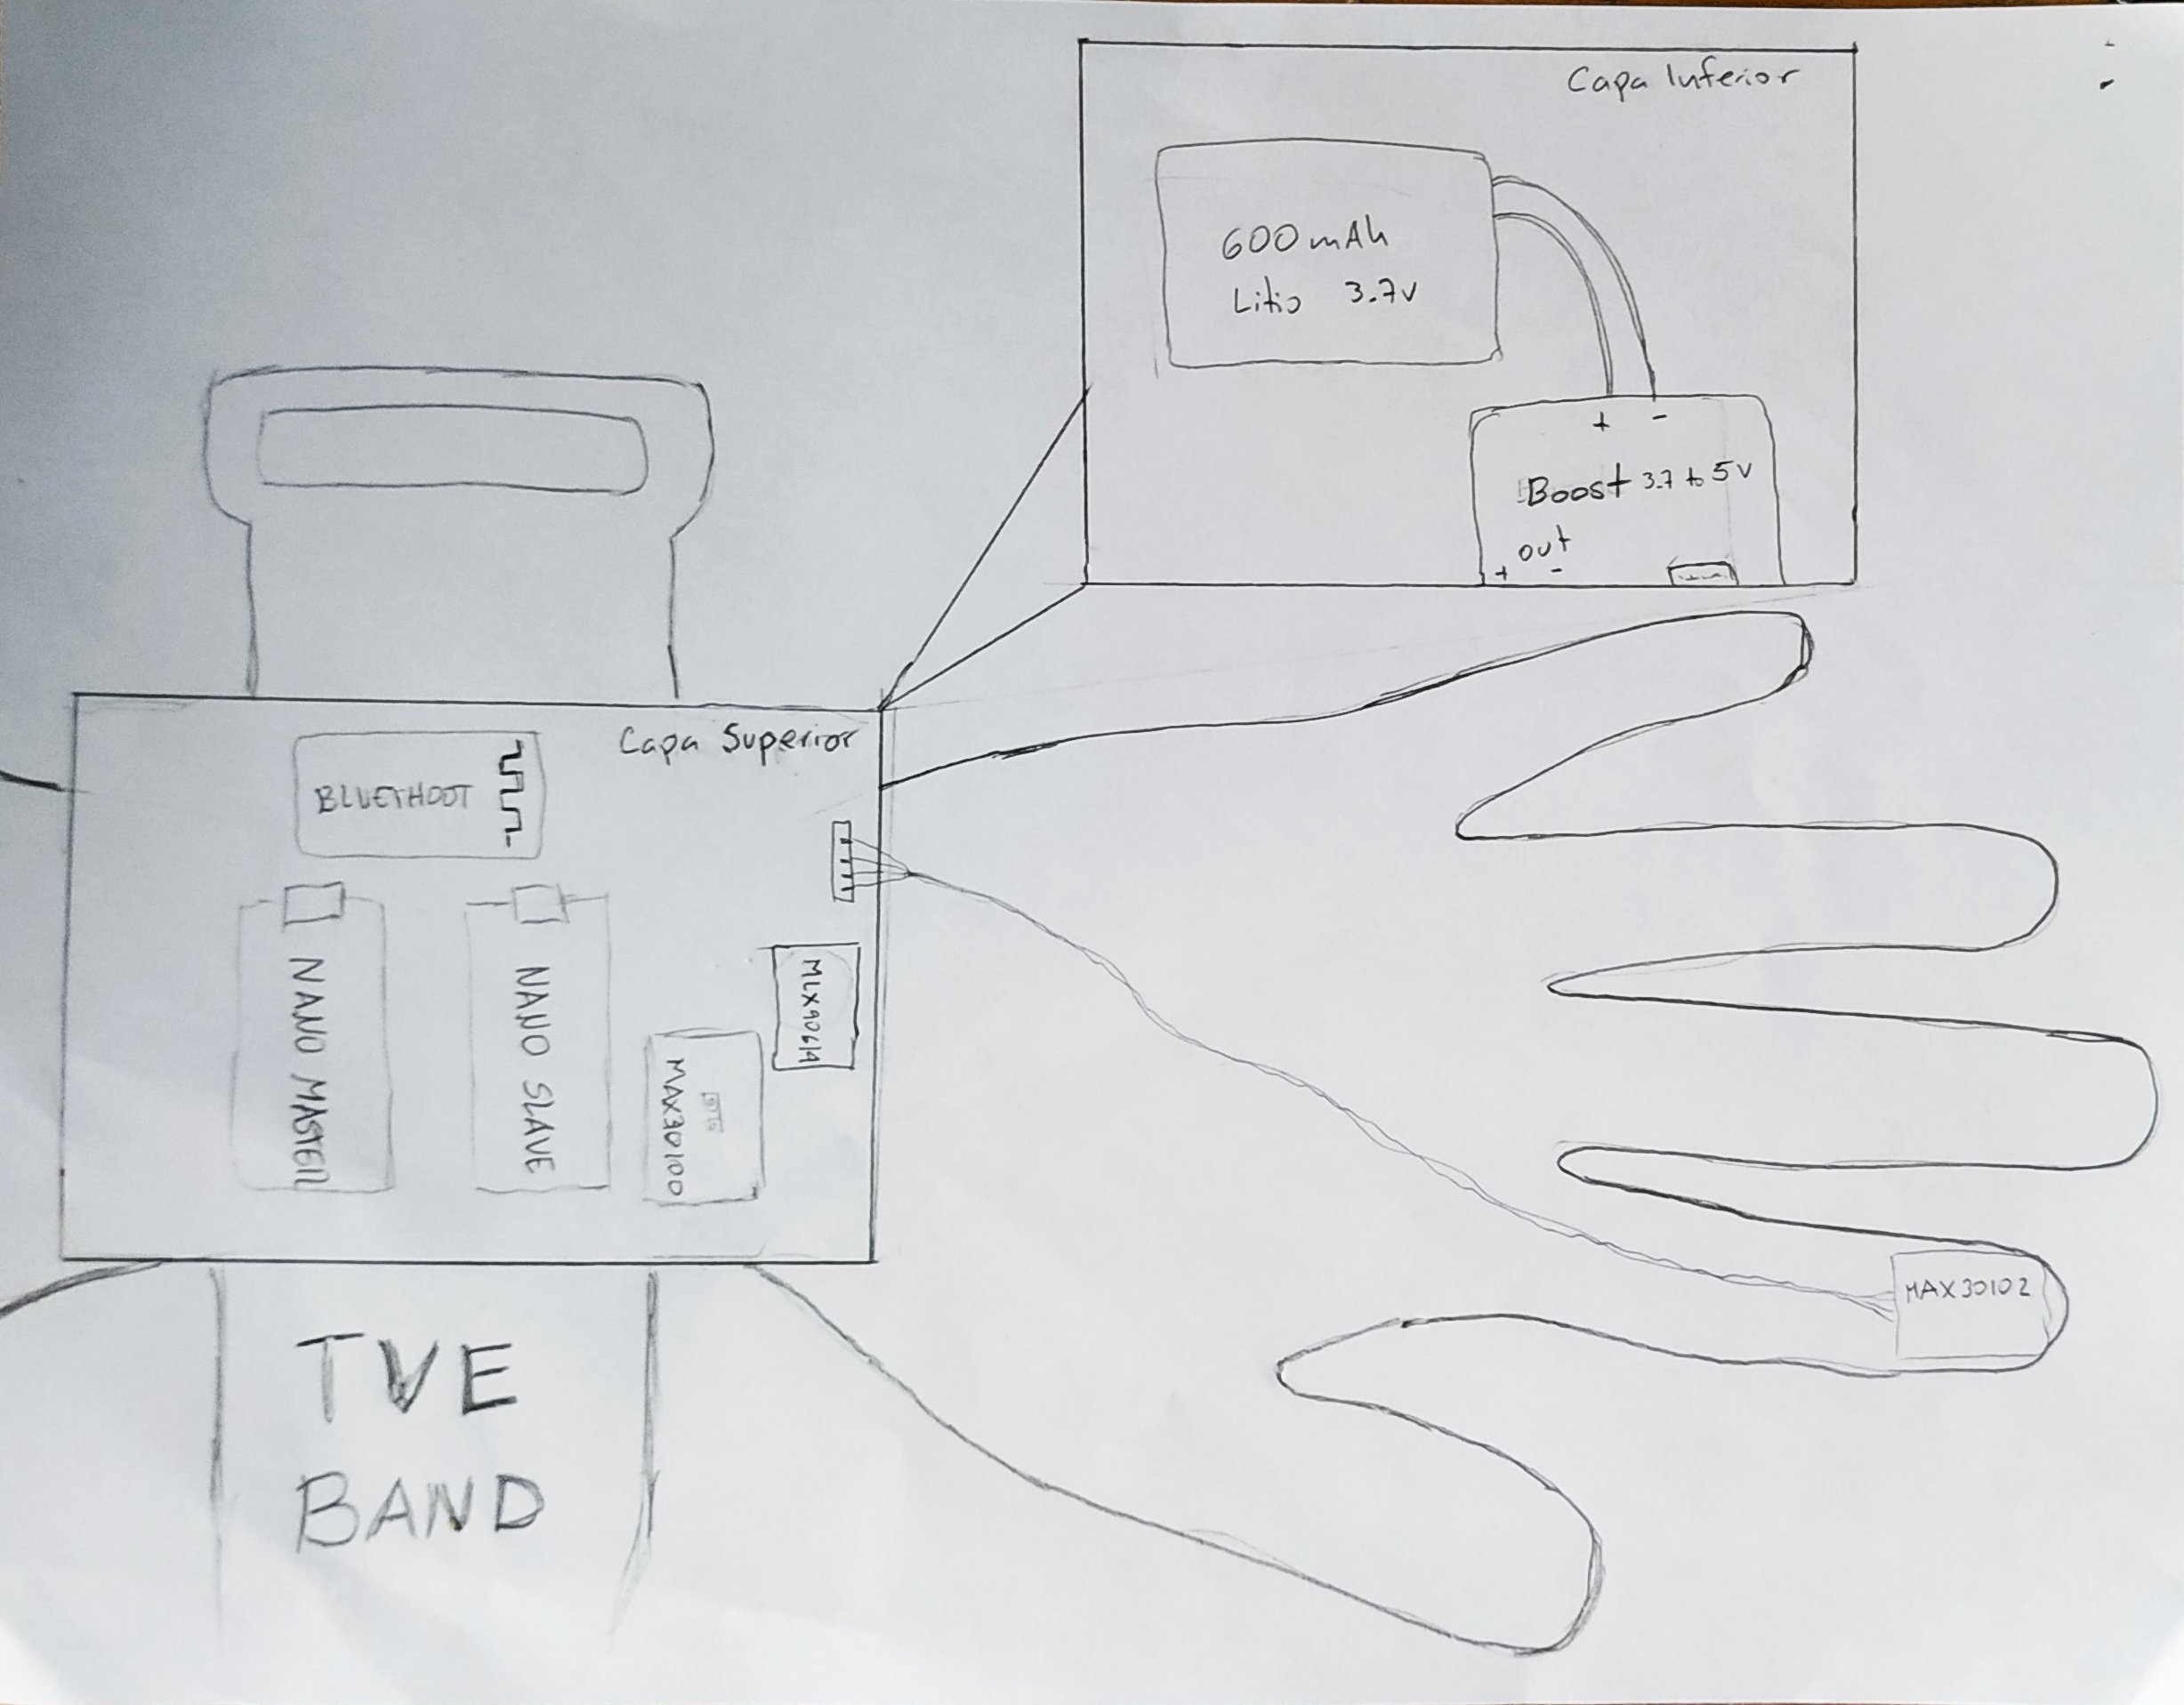 Capa Inferior
600 mAh
Litio 3.7v
+ -
Boost 3.7 to 5v
out
+ -
Capa Superior
BLUETHOOT
MLX90614
NANO MASTER
NANO SLAVE
MAX30100
MAX30102
TVE
BAND